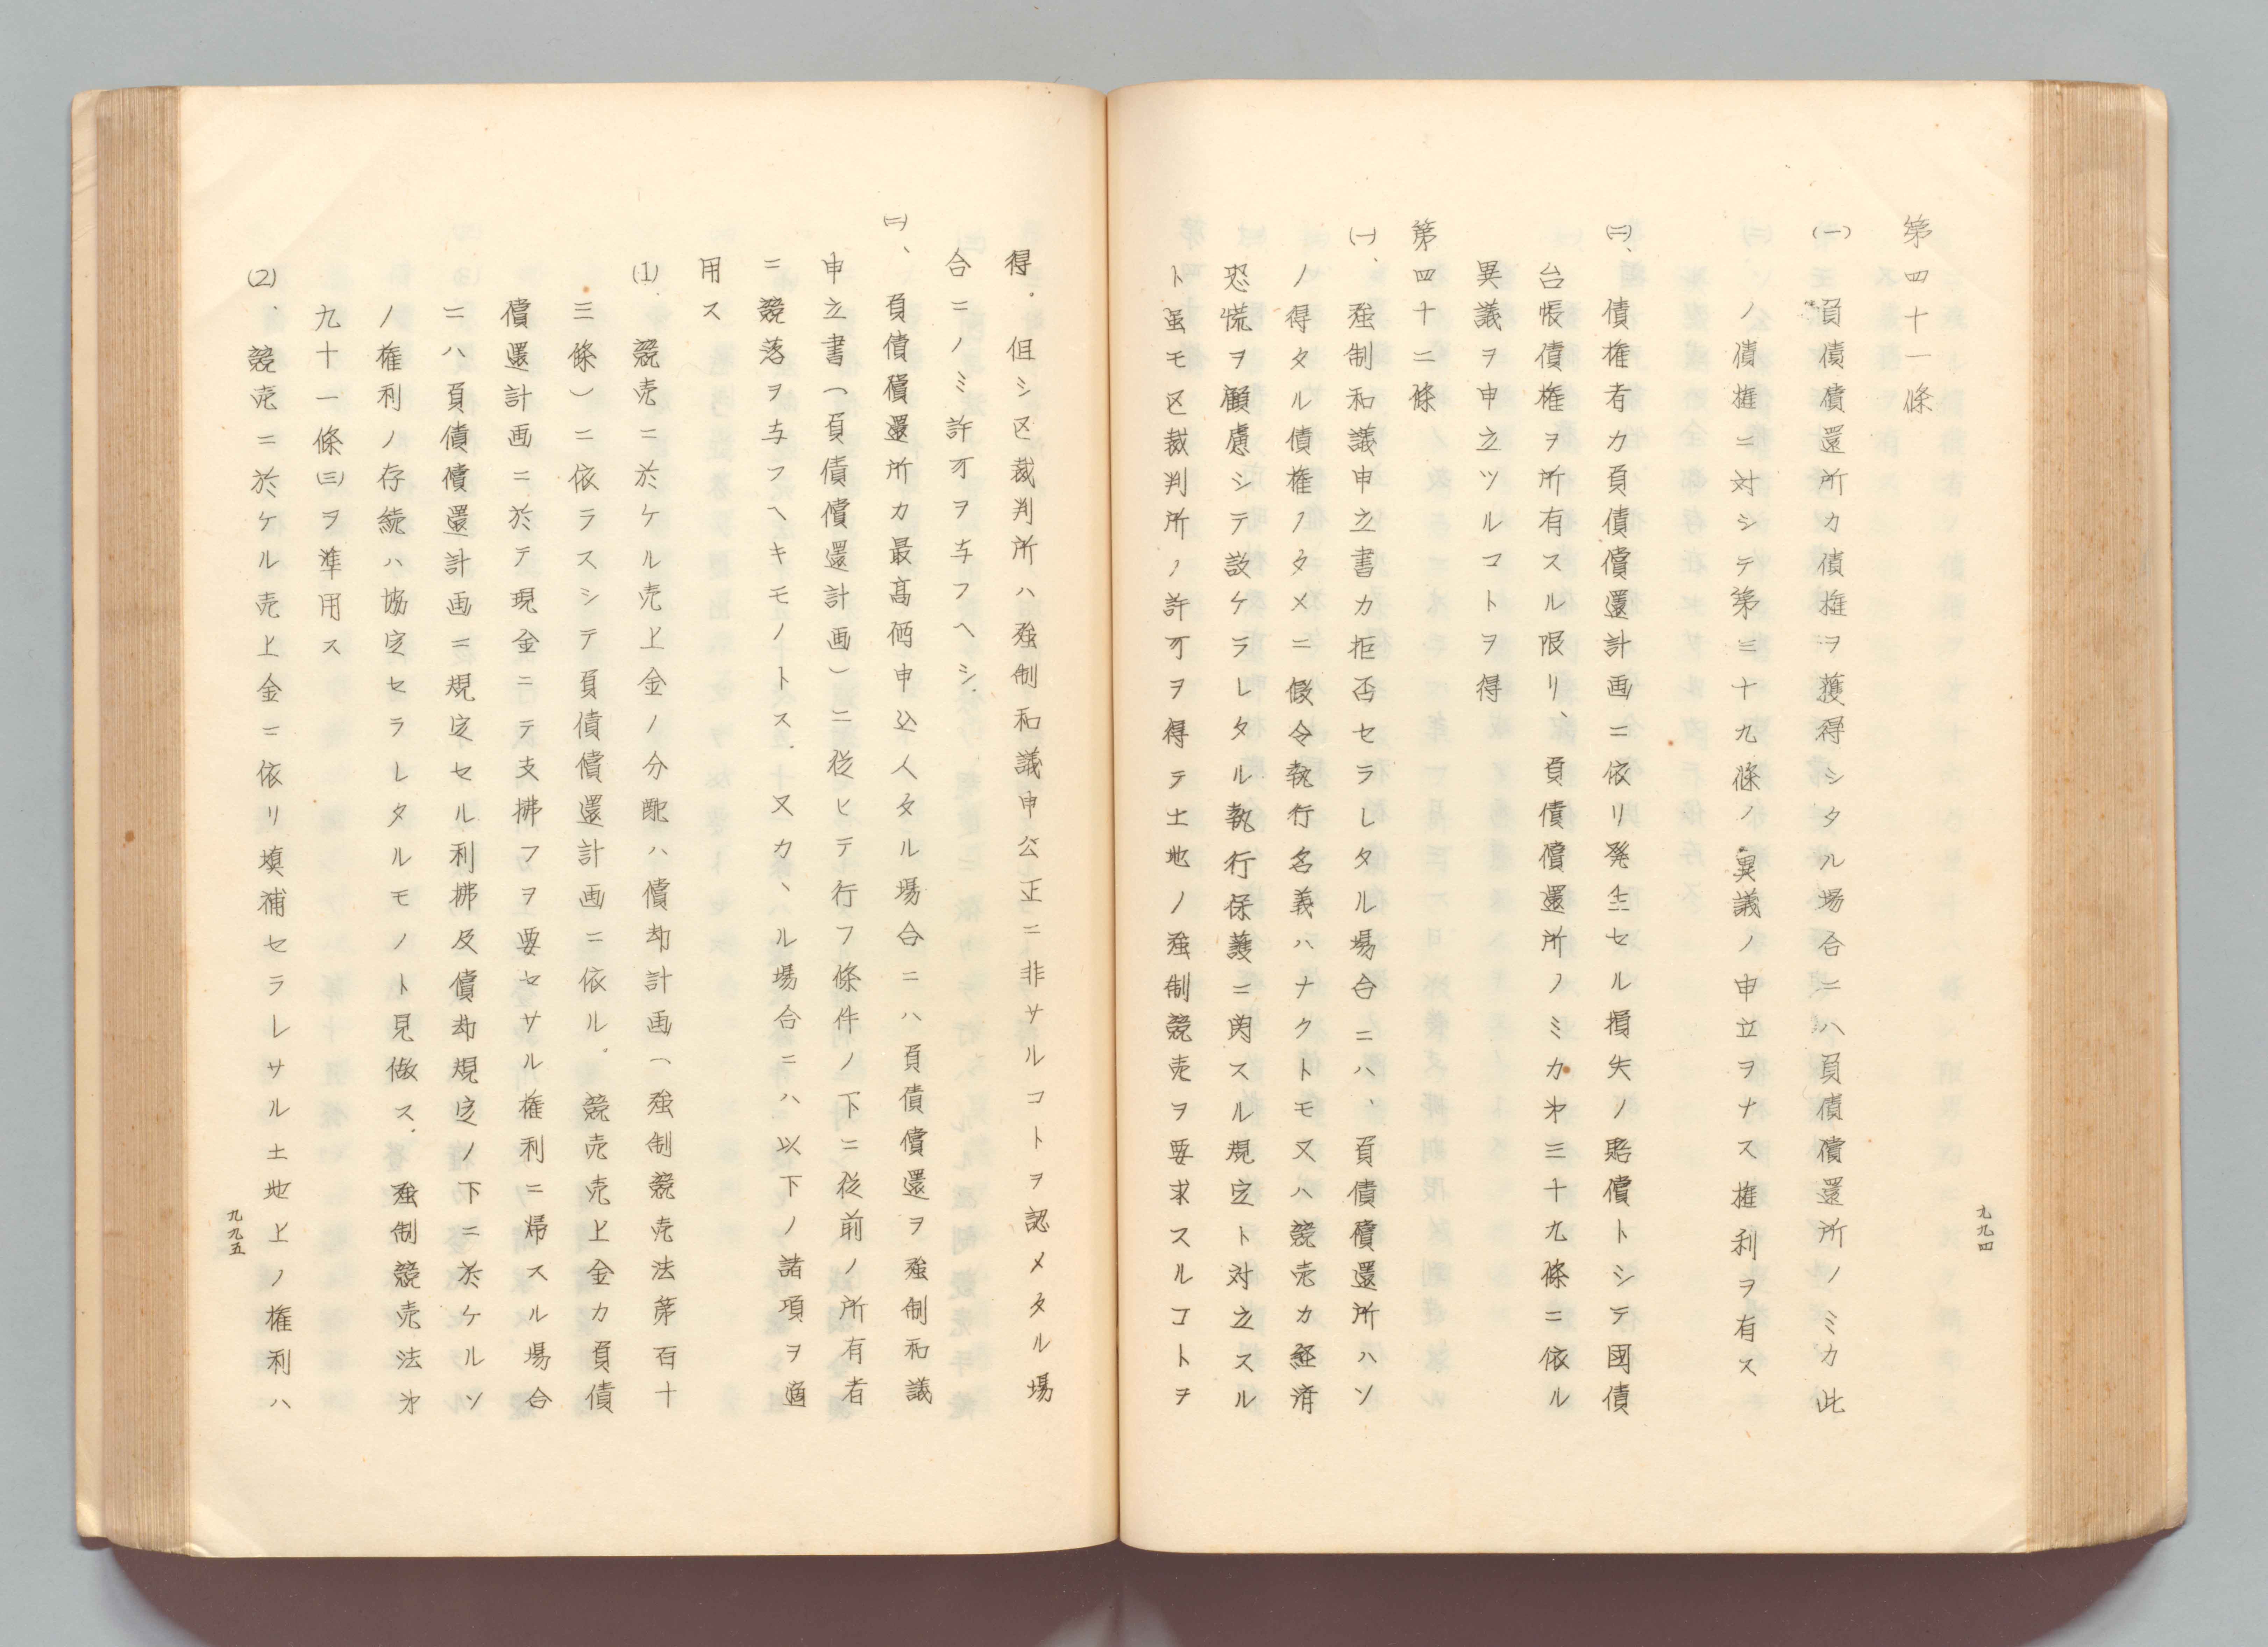 第四十一條
(一) 負債償還所カ債権ヲ獲得シタル場合ニハ負債償還所ノミカ此
ノ債権ニ対シテ第三十九條ノ異議ノ申立ヲナス権利ヲ有ス
(二)、債権者カ負債償還計画ニ依リ発生セル損失ノ賠償トシテ國債
台帳債権ヲ所有スル限リ、負債償還所ノミカ㐧三十九條ニ依ル
異議ヲ申立ツルコトヲ得
第四十二條
(一)、強制和議申立書カ拒否セラレタル場合ニハ、負債償還所ハソ
ノ得タル債権ノタメニ假令執行名義ハナクトモ又ハ競売カ経済
恐慌ヲ顧慮シテ設ケラレタル執行保護ニ関スル規定ト対立スル
ト虽モ区裁判所ノ許可ヲ得テ土地ノ強制競売ヲ要求スルコトヲ
九九四
得.但シ区裁判所ハ強制和議申公正ニ非サルコトヲ認メタル場
合ニノミ許可ヲ与フヘシ.
(二)、負債償還所カ最高価申込人タル場合ニハ負債償還ヲ強制和議
申立書(負債償還計画)ニ従ヒテ行フ條件ノ下ニ従前ノ所有者
ニ競落ヲ与フヘキモノトス.又カヽル場合ニハ以下ノ諸項ヲ適
用ス
(1).競売ニ於ケル売上金ノ分配ハ償却計画(強制競売法第百十
三條)ニ依ラスシテ負債償還計画ニ依ル.競売売上金カ負債
償還計画ニ於テ現金ニテ支拂フヲ要セサル権利ニ帰スル場合
ニハ負債償還計画ニ規定セル利拂及償却規定ノ下ニ於ケルソ
ノ権利ノ存続ハ協定セラレタルモノト見做ス.強制競売法㐧
九十一條(三)ヲ準用ス
(2).競売ニ於ケル売上金ニ依リ填補セラレサル土地上ノ権利ハ
九九五